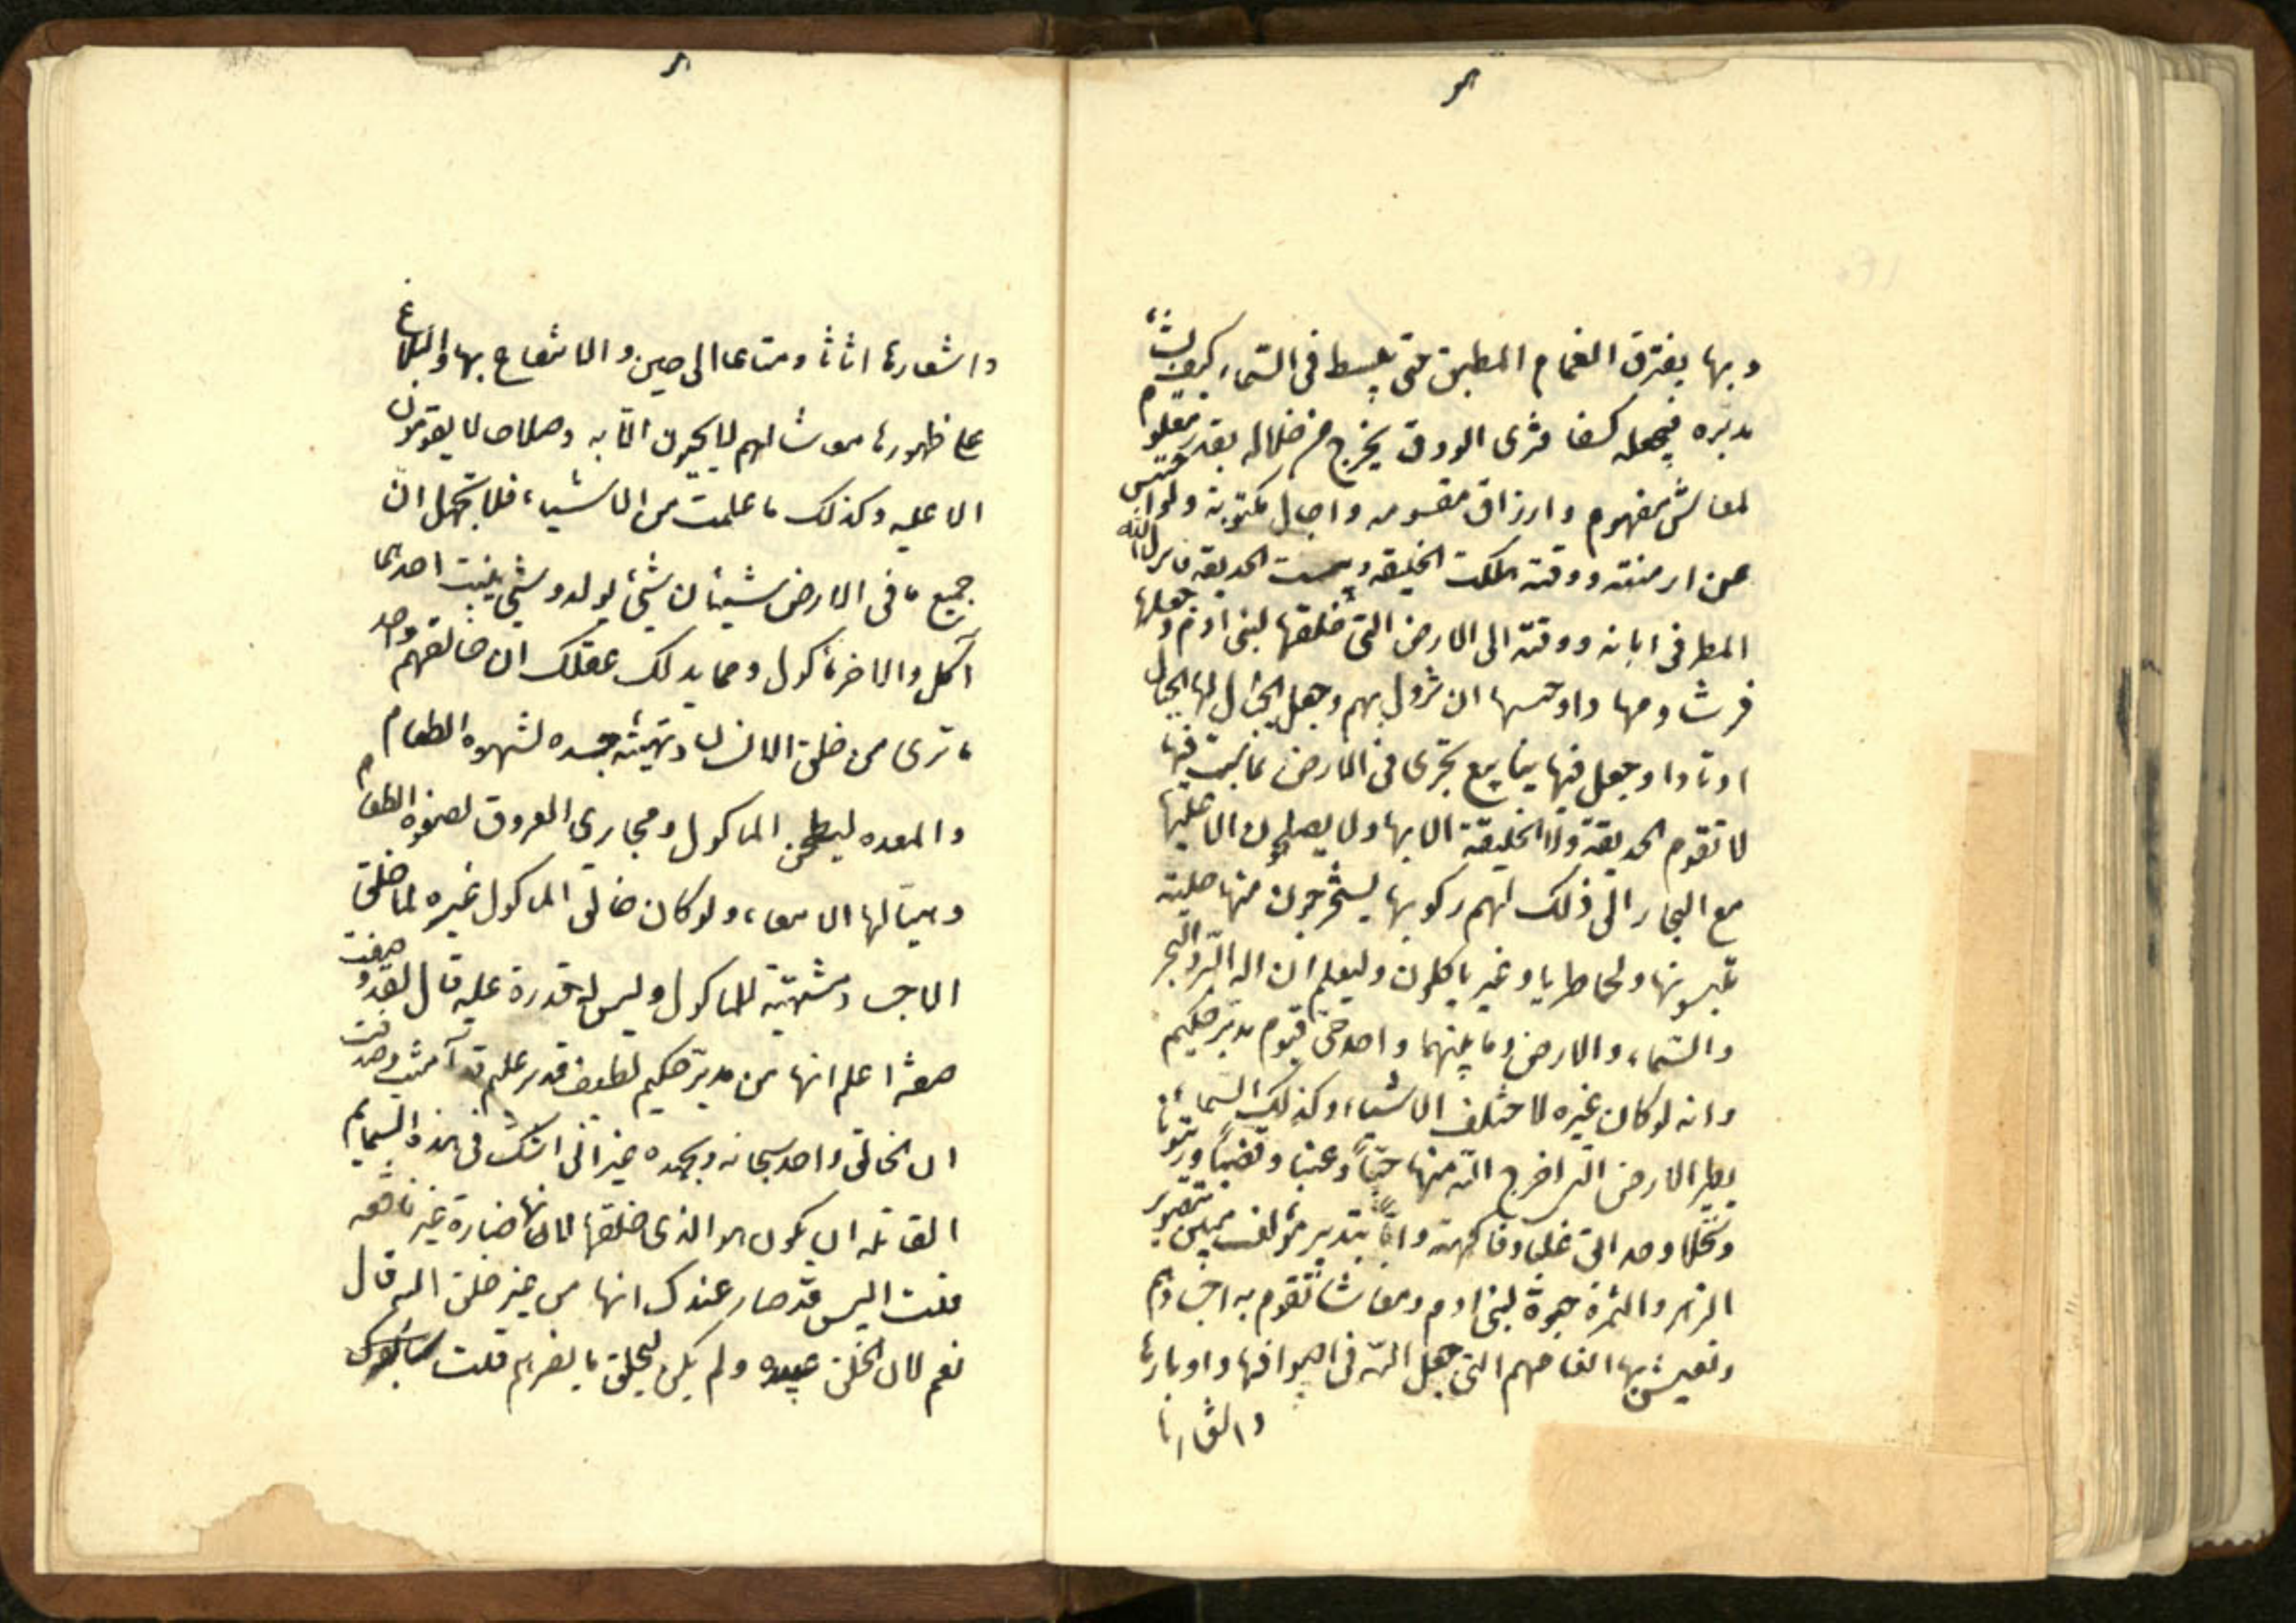 وبها يفترق الغمام المطبق حتى ينبسط فى السماء كيف يشاء
مدبره فيجعله كسفا فترى الودق يخرج من خلاله بقدر معلوم
لمعاش مفهوم وارزاق مقسومه واجال مكتوبة ولو احتبس
عن ازمنته ووقته هلكت الخليقه ويبست الحديقه فانزل الله
المطر فى ابانه ووقته الى الارض التى خلقها لبنى ادم وجعلها
فرشا ومهادا وحبسها ان تزول بهم وجعل الجبال لها
اوتادا وجعل فيها ينابيع تجرى فى الارض بما تنبت فيها
لا تقوم الحديقة ولا الخليقة الا بها ولا يصلحون الا عليها
مع البحار التى ذلك لهم ركوبها يستخرجون منها حلية
تلبسونها ولحما طريا وغيره ياكلون وليعلم ان اله البر والبحر
والسماء والارض وما بينهما واحد حى قيوم مدبر حكيم
وانه لو كان غيره لاختلف الاشياء وكذلك السماء
نظير الارض التى اخرج الله منها حبا وعنبا وقضبا وزيتونا
ونخلا وحدائق غلبا وفاكهة وابا بتدبير مؤلف مبين بتصوير
الزهر والثمرة حيوة لبنى ادم ومعاشا تقوم به اجسادهم
وتعيش بها انعامهم التى جعل الله فى اصوافها واوبارها
واشعارها
واشعارها اثاثا ومتاعا الى حين والانتفاع بها والبلاغ
على ظهورها معاشا لهم لا يحيون الا به وصلاحا لا يقومون
الا عليه وكذلك ما علمت من الاشياء فلا تجهل ان
جميع ما فى الارض شيئان شئ يولد وشئ ينبت احدهما
آكل والاخر ماكول ومما يدلك عقلك ان خالقهم واحد
ما ترى من خلق الانسان وتهيئة جسده لشهوه الطعام
والمعده ليطحن الماكول ومجارى العروق لصفوه الطعام
وهيا لها الامعاء ولو كان خالق الماكول غيره لما خلق
الاجساد مشتهية للماكول وليس له قدرة عليه قال لقد وصفت
صفة اعلم انها من مدبر حكيم لطيف قدير عليم قد آمنت وصدقت
ان الخالق واحد سبحانه وبحمده غير انى اشك فى هذه السمايم
القاتله ان يكون هو الذى خلقها لانها ضارة غير نافعه
قلت اليس قد صار عندك انها من غير خلق الله قال
نعم لان الخلق عبيده ولم يكن ليخلق ما يضرهم قلت